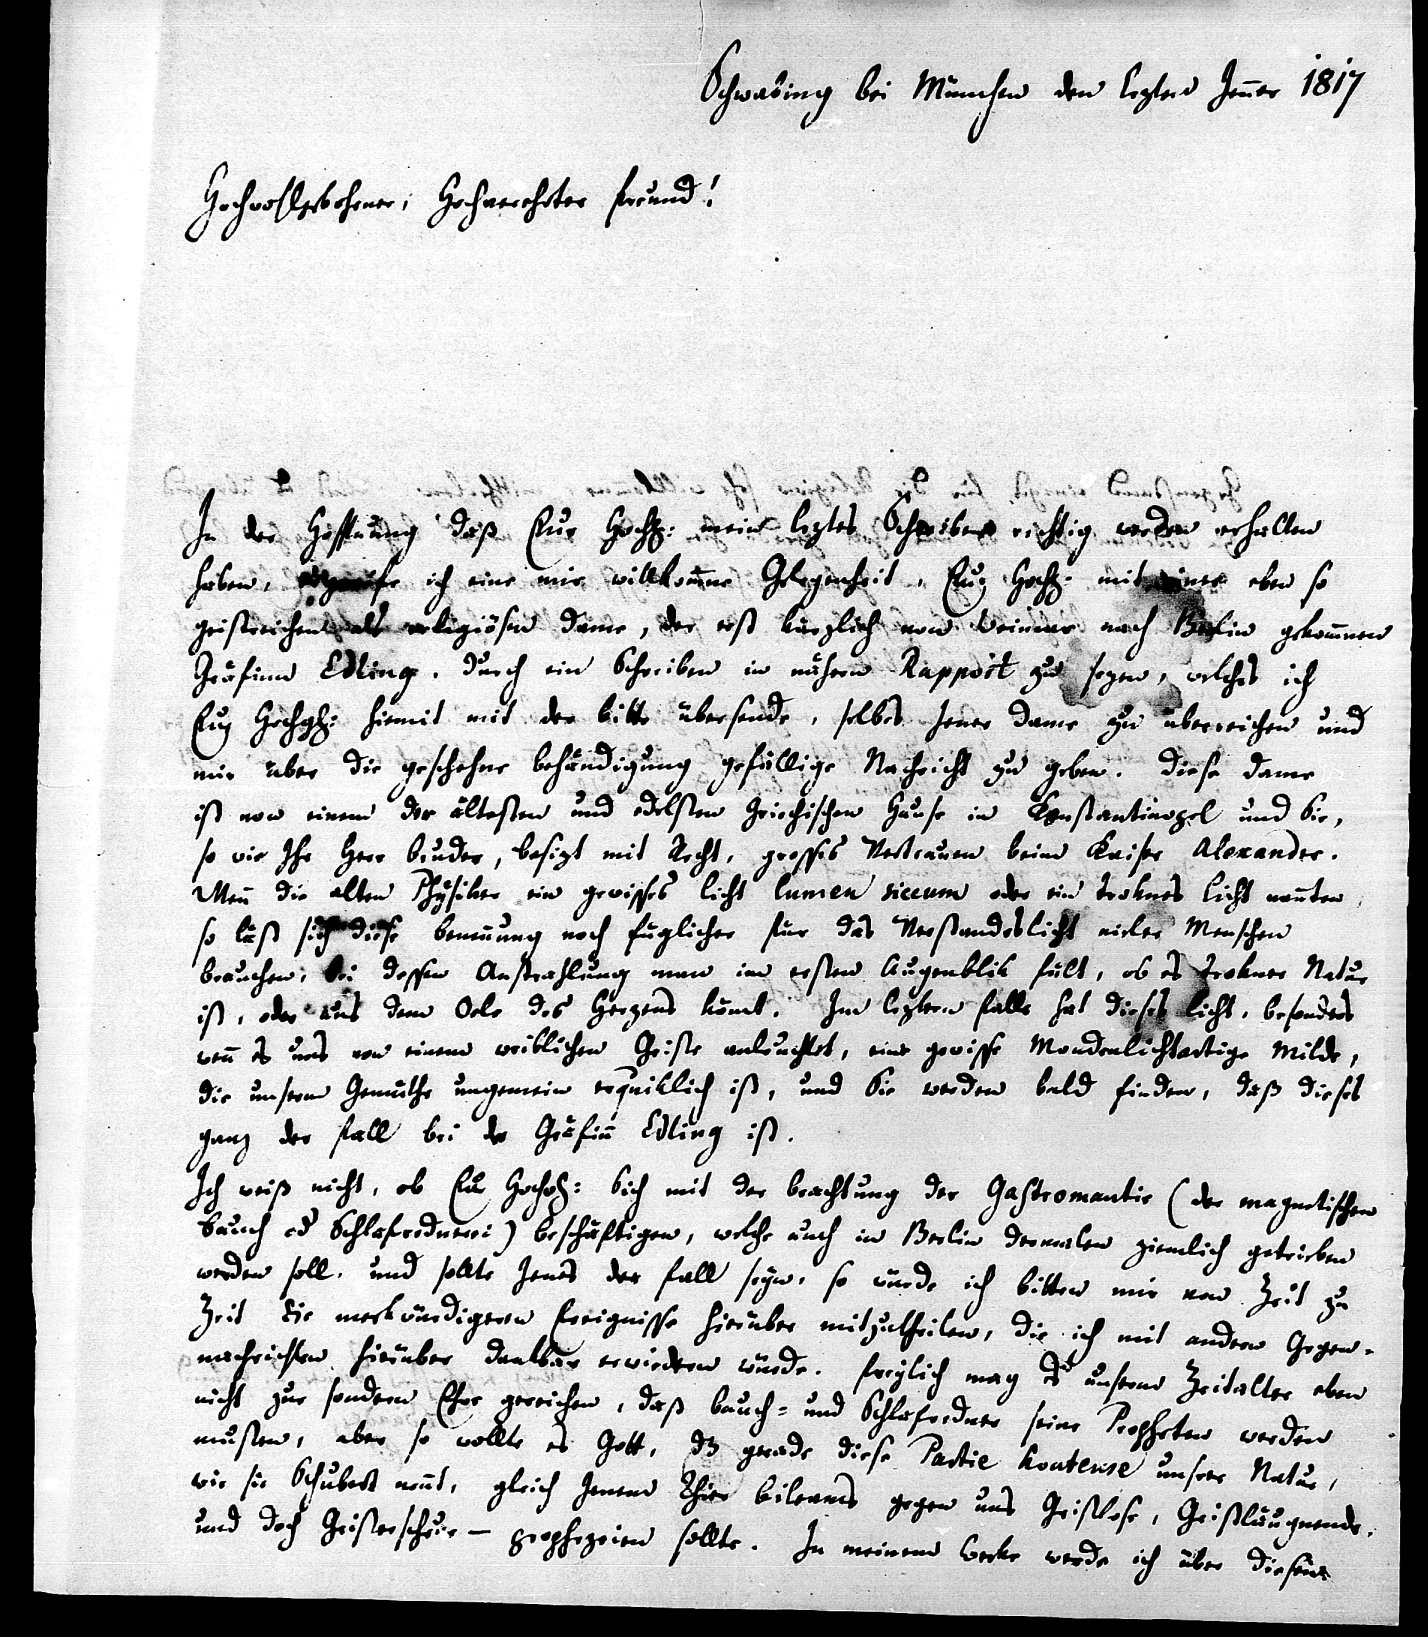 Schwabing bei München den lezten Jener 1817
Hochwohlgebohrner, Hochverehrter Freund!
In der Hoffnung daß Eur Hochg: mein leztes Schreiben richtig werden erhalten
haben, ergreife ich eine mir willkomne Gelegenheit, Eur Hochg: mit einer eben so
geistreichen als religiösen Dame, der erst kürzlich von Weimar nach Berlin gekommnen
Gräfinn Edling, durch ein Schreiben in nähern Rapport zu sezen, welches ich
Eur Hochgb: hiemit mit der bitte übersende, selbes Jener Dame zu überreichen und
mir über die geschehne behändigung gefällige Nachricht zu geben. Diese Dame
ist von einem der ältesten und edelsten Griechischen Hause in Konstantinopel und Sie,
so wie Ihr Herr bruder, besizt mit Recht, grosses Vertrauen beim Kaiser Alexander.
Wenn die alten Physiker ein gewisses licht lumen siccum oder ein troknes licht nannten,
so läßt sich diese benennung noch füglicher für das Verstandeslicht vieler Menschen
brauchen, bei dessen Anstrahlung man im ersten Augenblik fült, ob es trokner Natur
ist, oder aus dem Oele des Herzens kömt. Im leztern Falle hat dieses licht, besonders
wenn es uns von einem weiblichen Geiste anleuchtet, eine gewisse Mondenlichtartige Milde,
die unserm Gemüthe ungemein erquiklich ist, und Sie werden bald finden, daß dieses
ganz der Fall bei der Gräfinn Edling ist.
Ich weiß nicht, ob Eur Hochg: Sich mit der beachtung der Gastromantie (der magnetischen
bauch od Schlafrednerei) beschäftigen, welche auch in Berlin dermalen ziemlich getrieben
werden soll. und sollte Jenes der Fall seyn, so würde ich bitten mir von Zeit zu
Zeit die merkwürdigern Ereignisse hierüber mitzutheilen, die ich mit andern Gegen-
nachrichten hierüber dankbar erwiedern würde. Freylich mag es unserm Zeitalter eben
nicht zur sondern Ehre gereichen, daß bauch- und Schlafredner seine Propheten werden
mußten, aber so wollte es Gott, dß gerade diese Partie honteuse unsrer Natur,
wie sie Schubert nennt, gleich Jenem Thier bileams gegen uns Geistlose, Geistläugnende,
und doch Geisterscheue — prophezeien sollte. In meinem Werke werde ich über diesen